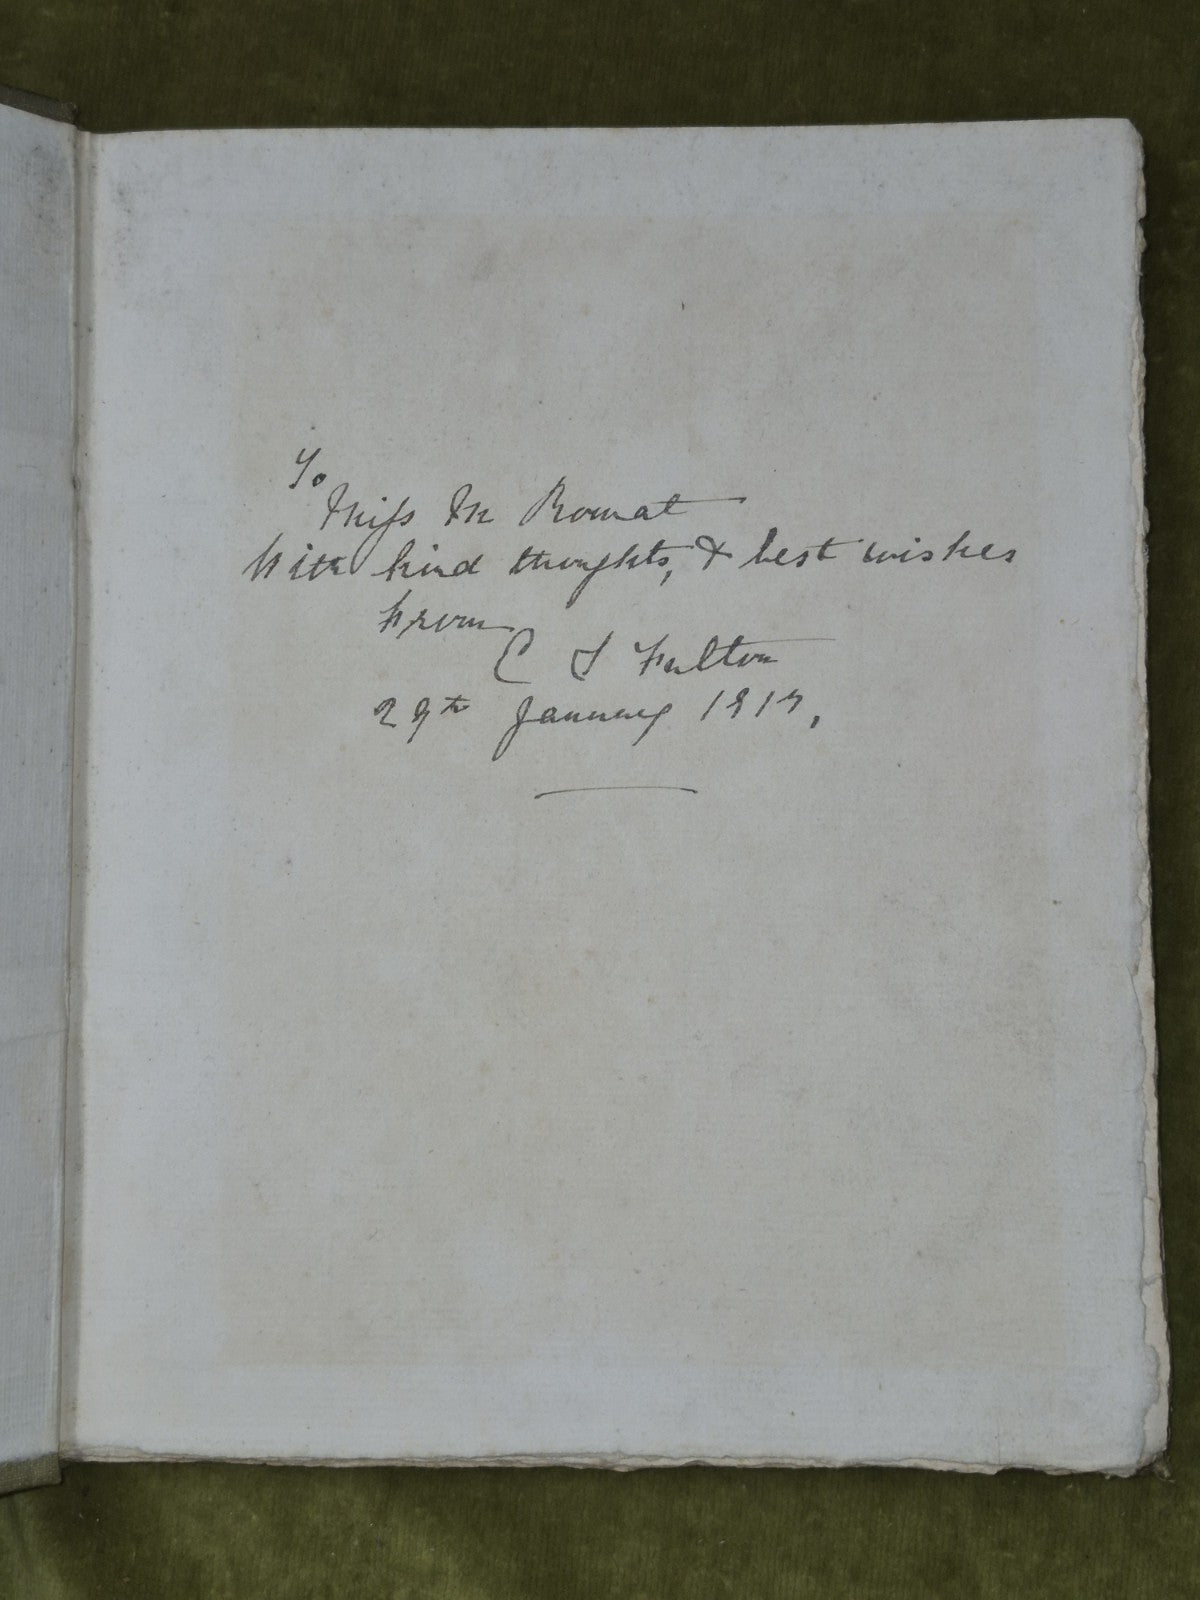 To
Miss M Rowat
With kind thoughts, & best wishes
from
C J Fulton
29th January 1917,